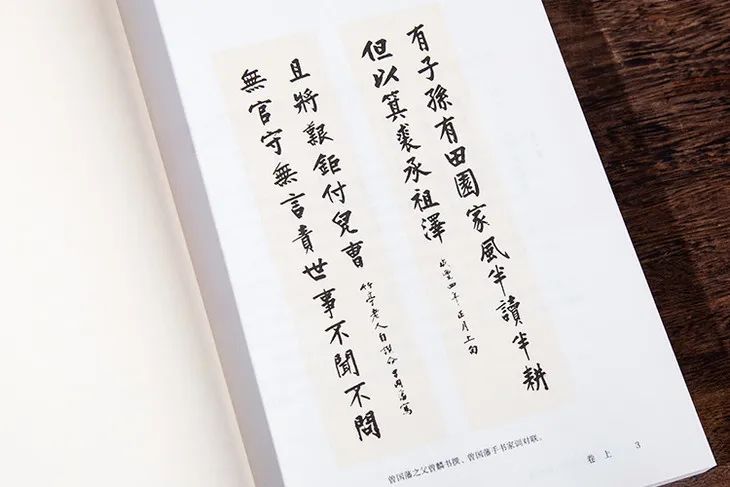 有子孫有田園家風半讀半耕
但以箕裘承祖澤
咸豐四年正月上旬
無官守無言責世事不聞不問
且將艱鉅付兒曹
竹亭老人自譔命國藩寫
曾国藩之父曾麟书撰、曾国藩手书家训对联。
卷上 3